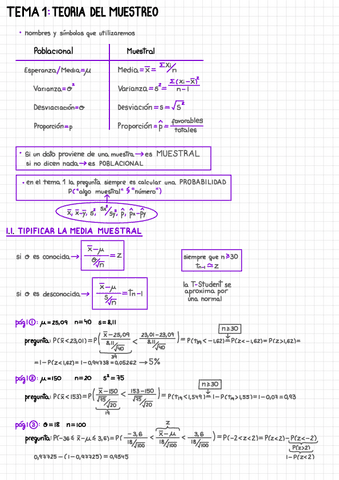 TEMA 1: TEORIA DEL MUESTREO
• Nombres y símbolos que utilizaremos
Poblacional Muestral
Esperanza/Media=μ Media = x̄ = Σxi/n
Varianza=σ² Varianza = s² = Σ(xi-x̄)²/n-1
Desviación=σ Desviación = s = √s²
Proporción=p Proporción = p̂ = favorables/totales
• Si un dato proviene de una muestra → es MUESTRAL
si no dicen nada → es POBLACIONAL
• en el tema 1 la pregunta siempre es calcular una PROBABILIDAD
P("algo muestral" ≶ "número")
1.1. TIPIFICAR LA MEDIA MUESTRAL
si σ es conocida → x̄-μ / σ/√n = z
siempre que n≥30
tn-1 ≃ z
si σ es desconocida → x̄-μ / s/√n = tn-1
la T-Student se
aproxima por
una normal
pág1①: μ=23,09 n=40 s=8,11
n≥30
39
=1-P(z<1,62)=1-0,94738=0,05262 → 5%
pág1②: μ=150 n=20 s²=75
n≥30
19
pág1③: σ=18 n=100
z
pregunta: P(-3,6≤x̄-μ≤3,6)=P(-3,6 / 18/√100 < x̄-μ / 18/√100 < 3,6 / 18/√100)=P(-2<z<2)=P(z<2)-P(z<-2)
P(z>2)
1-P(z<2)
0,97725-(1-0,97725)=0,9545